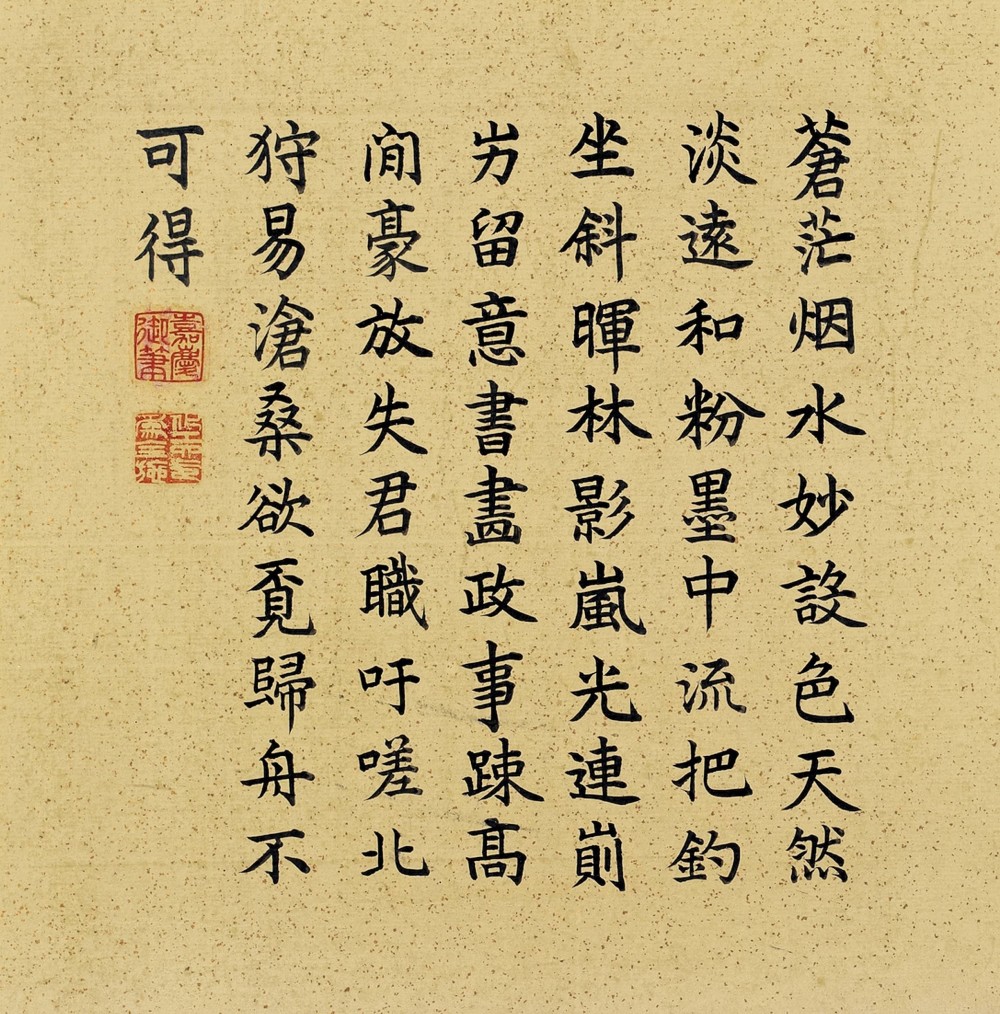 蒼茫烟水妙設色天然
淡遠和粉墨中流把釣
坐斜暉林影嵐光連崱
屴留意書畫政事踈高
閒豪放失君職吁嗟北
狩易滄桑欲覔歸舟不
可得
嘉慶
御筆